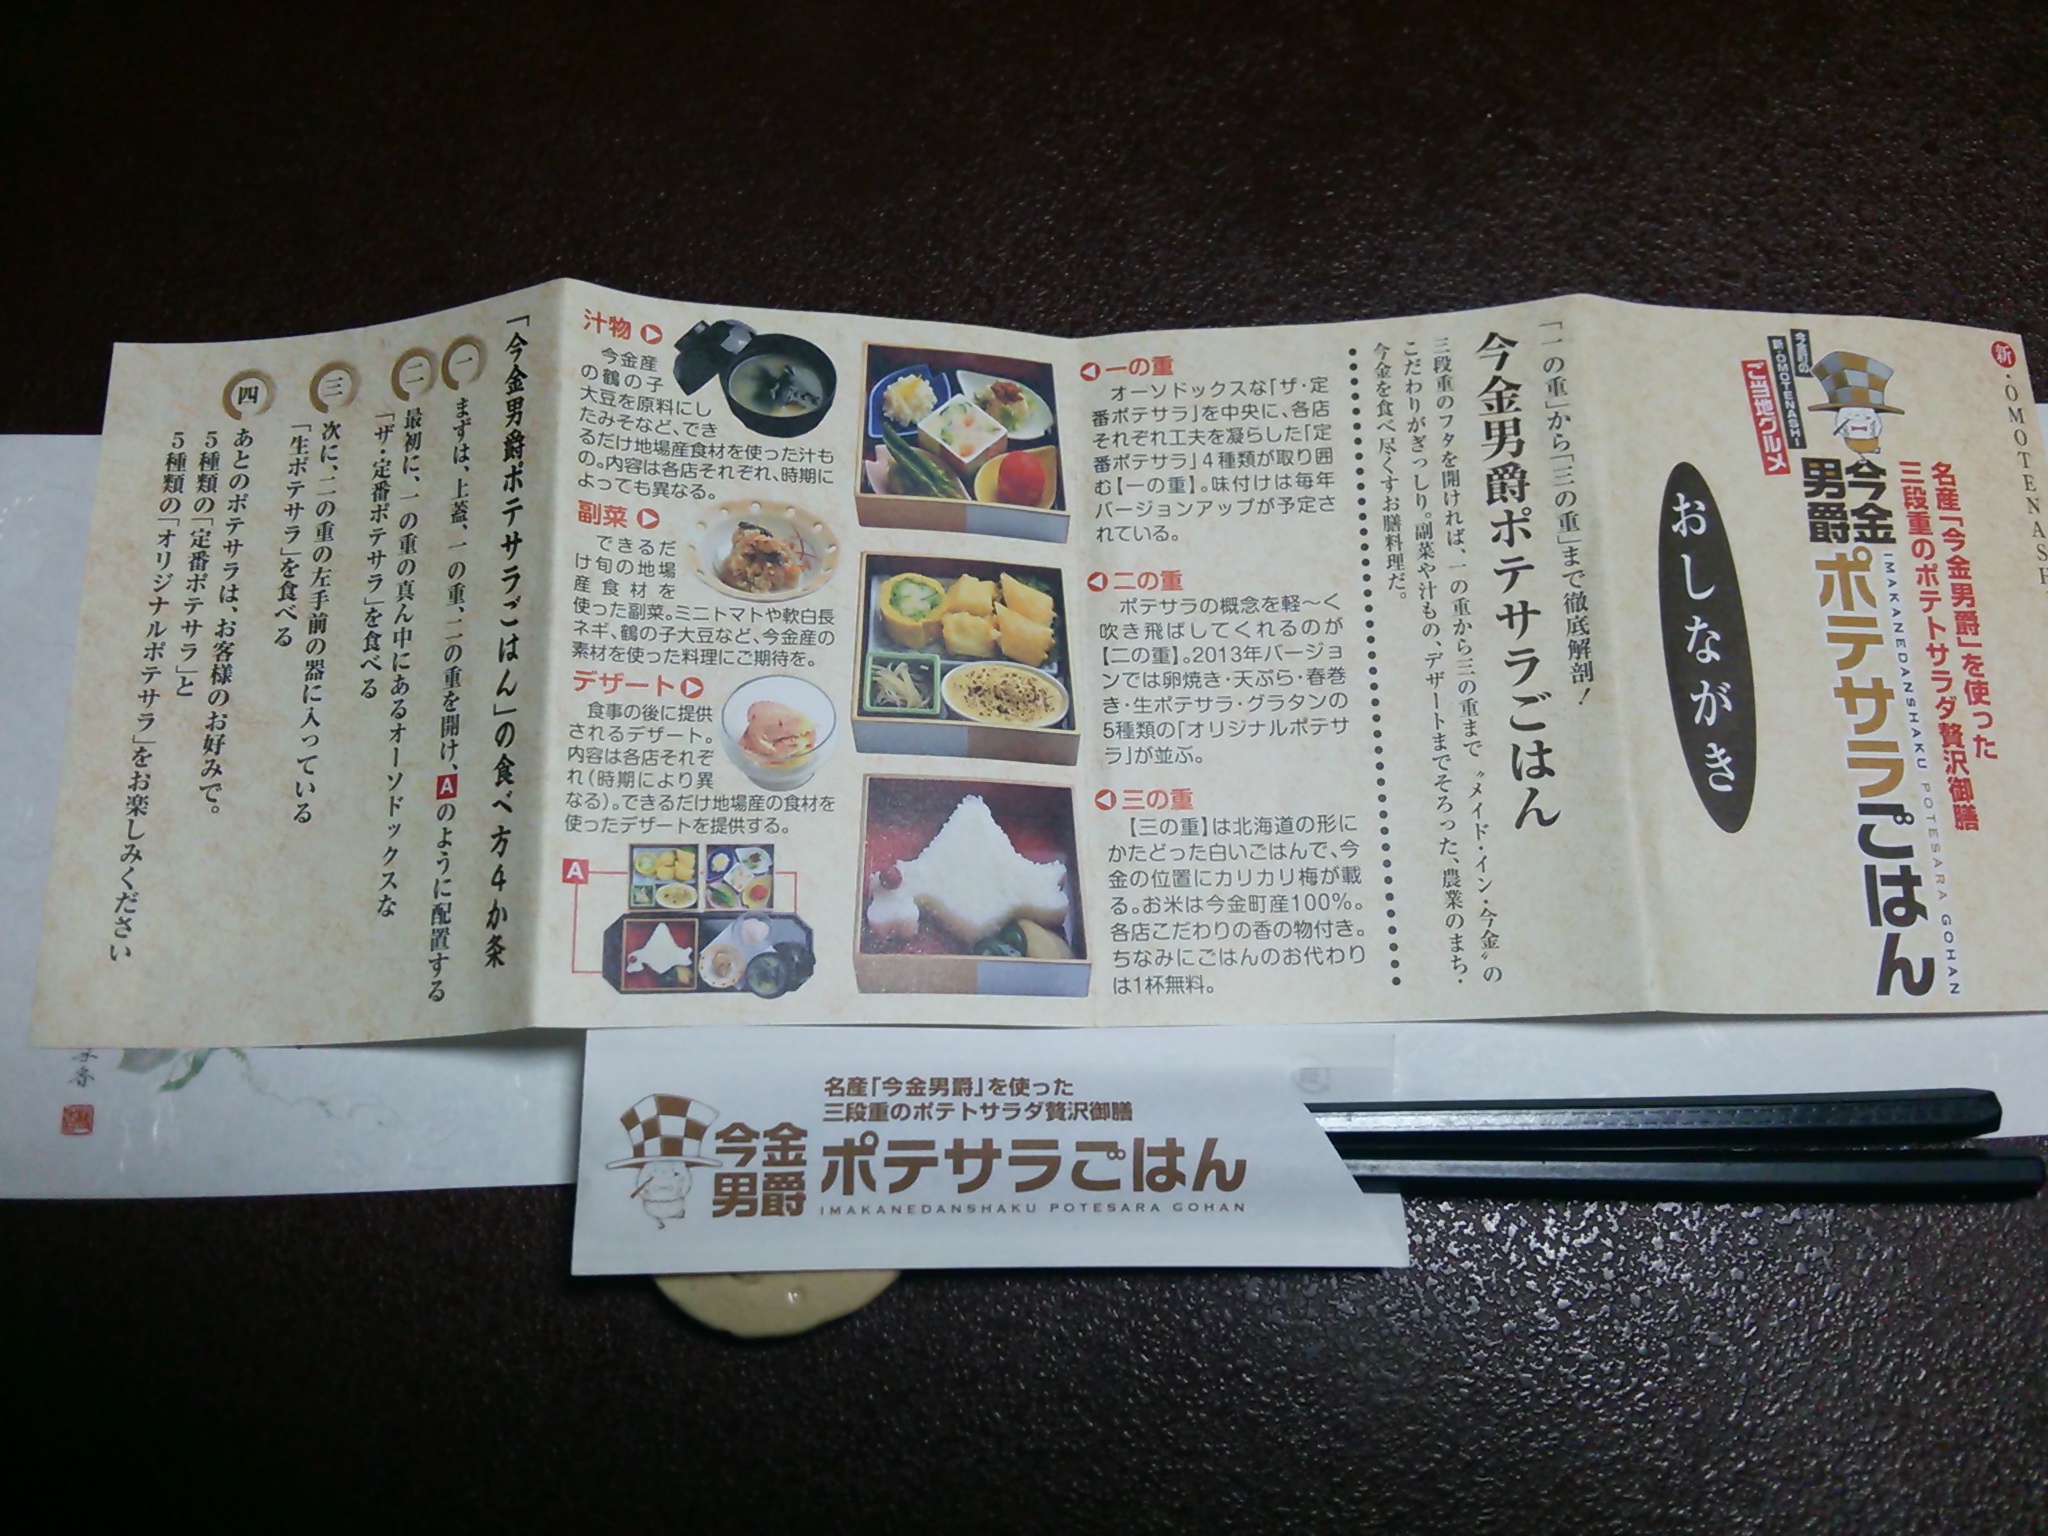 新・OMOTENASH
名産「今金男爵」を使った
三段重のポテトサラダ贅沢御膳
今金
男爵
ポテサラごはん
IMAKANEDANSHAKU POTESARA GOHAN
新・OMOTENASHI
ご当地グルメ
おしながき
「一の重」から「三の重」まで徹底解剖！
今金男爵ポテサラごはん
三段重のフタを開ければ、一の重から三の重まで〝メイド・イン・今金〟の
こだわりがぎっしり。副菜や汁もの、デザートまでそろった、農業のまち・
今金を食べ尽くすお膳料理だ。
一の重
オーソドックスな「ザ・定
番ポテサラ」を中央に、各店
それぞれ工夫を凝らした「定
番ポテサラ」4種類が取り囲
む【一の重】。味付けは毎年
バージョンアップが予定さ
れている。
二の重
ポテサラの概念を軽〜く
吹き飛ばしてくれるのが
【二の重】。2013年バージョ
ンでは卵焼き・天ぷら・春巻
き・生ポテサラ・グラタンの
5種類の「オリジナルポテサ
ラ」が並ぶ。
三の重
【三の重】は北海道の形に
かたどった白いごはんで、今
金の位置にカリカリ梅が載
る。お米は今金町産100%。
各店こだわりの香の物付き。
ちなみにごはんのお代わり
は1杯無料。
汁物
今金産
の鶴の子
大豆を原料にし
たみそなど、でき
るだけ地場産食材を使った汁も
の。内容は各店それぞれ、時期に
よっても異なる。
副菜
できるだ
け旬の地場
産食材を
使った副菜。ミニトマトや軟白長
ネギ、鶴の子大豆など、今金産の
素材を使った料理にご期待を。
デザート
食事の後に提供
されるデザート。
内容は各店それぞ
れ(時期により異
なる)。できるだけ地場産の食材を
使ったデザートを提供する。
A
「今金男爵ポテサラごはん」の食べ方4か条
一 まずは、上蓋、一の重、二の重を開け、Aのように配置する
二 最初に、一の重の真ん中にあるオーソドックスな
「ザ・定番ポテサラ」を食べる
三 次に、二の重の左手前の器に入っている
「生ポテサラ」を食べる
四 あとのポテサラは、お客様のお好みで。
5種類の「定番ポテサラ」と
5種類の「オリジナルポテサラ」をお楽しみください
名産「今金男爵」を使った
三段重のポテトサラダ贅沢御膳
今金
男爵
ポテサラごはん
IMAKANEDANSHAKU POTESARA GOHAN